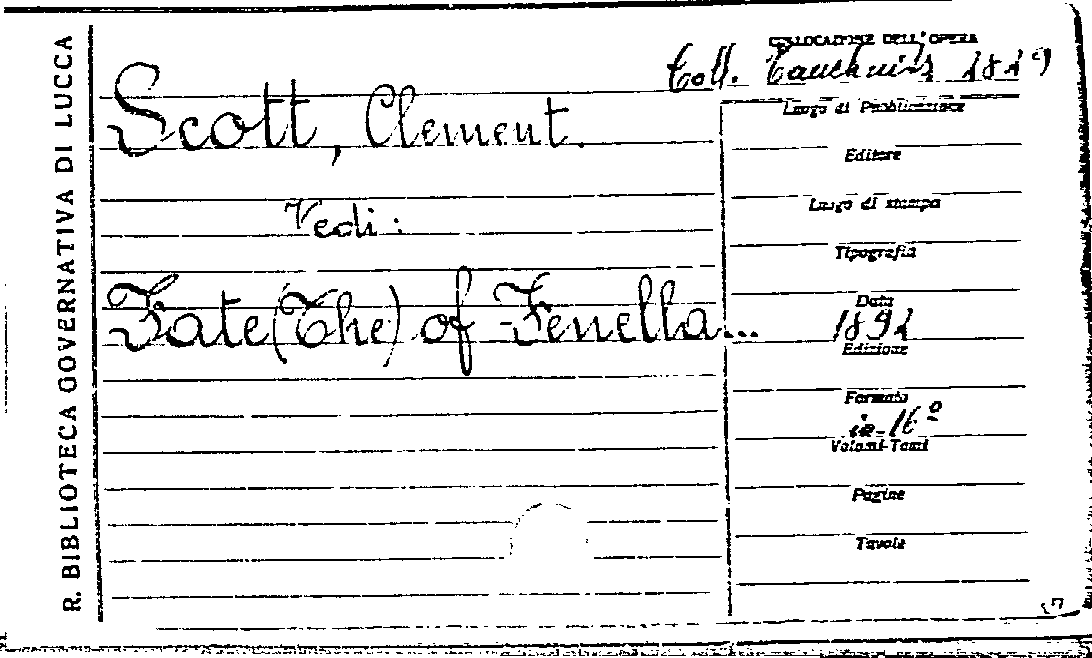 R. BIBLIOTECA GOVERNATIVA DI LUCCA
COLLOCAZIONE DELL'OPERA
Coll. Tauchnitz 2829
Scott, Clement.
Vedi:
Fate (The) of Fenella...
Luogo di Pubblicazione
Editore
Luogo di stampa
Tipografia
Data
1892
Edizione
Formato
in-16º
Volumi-Tomi
Pagine
Tavole